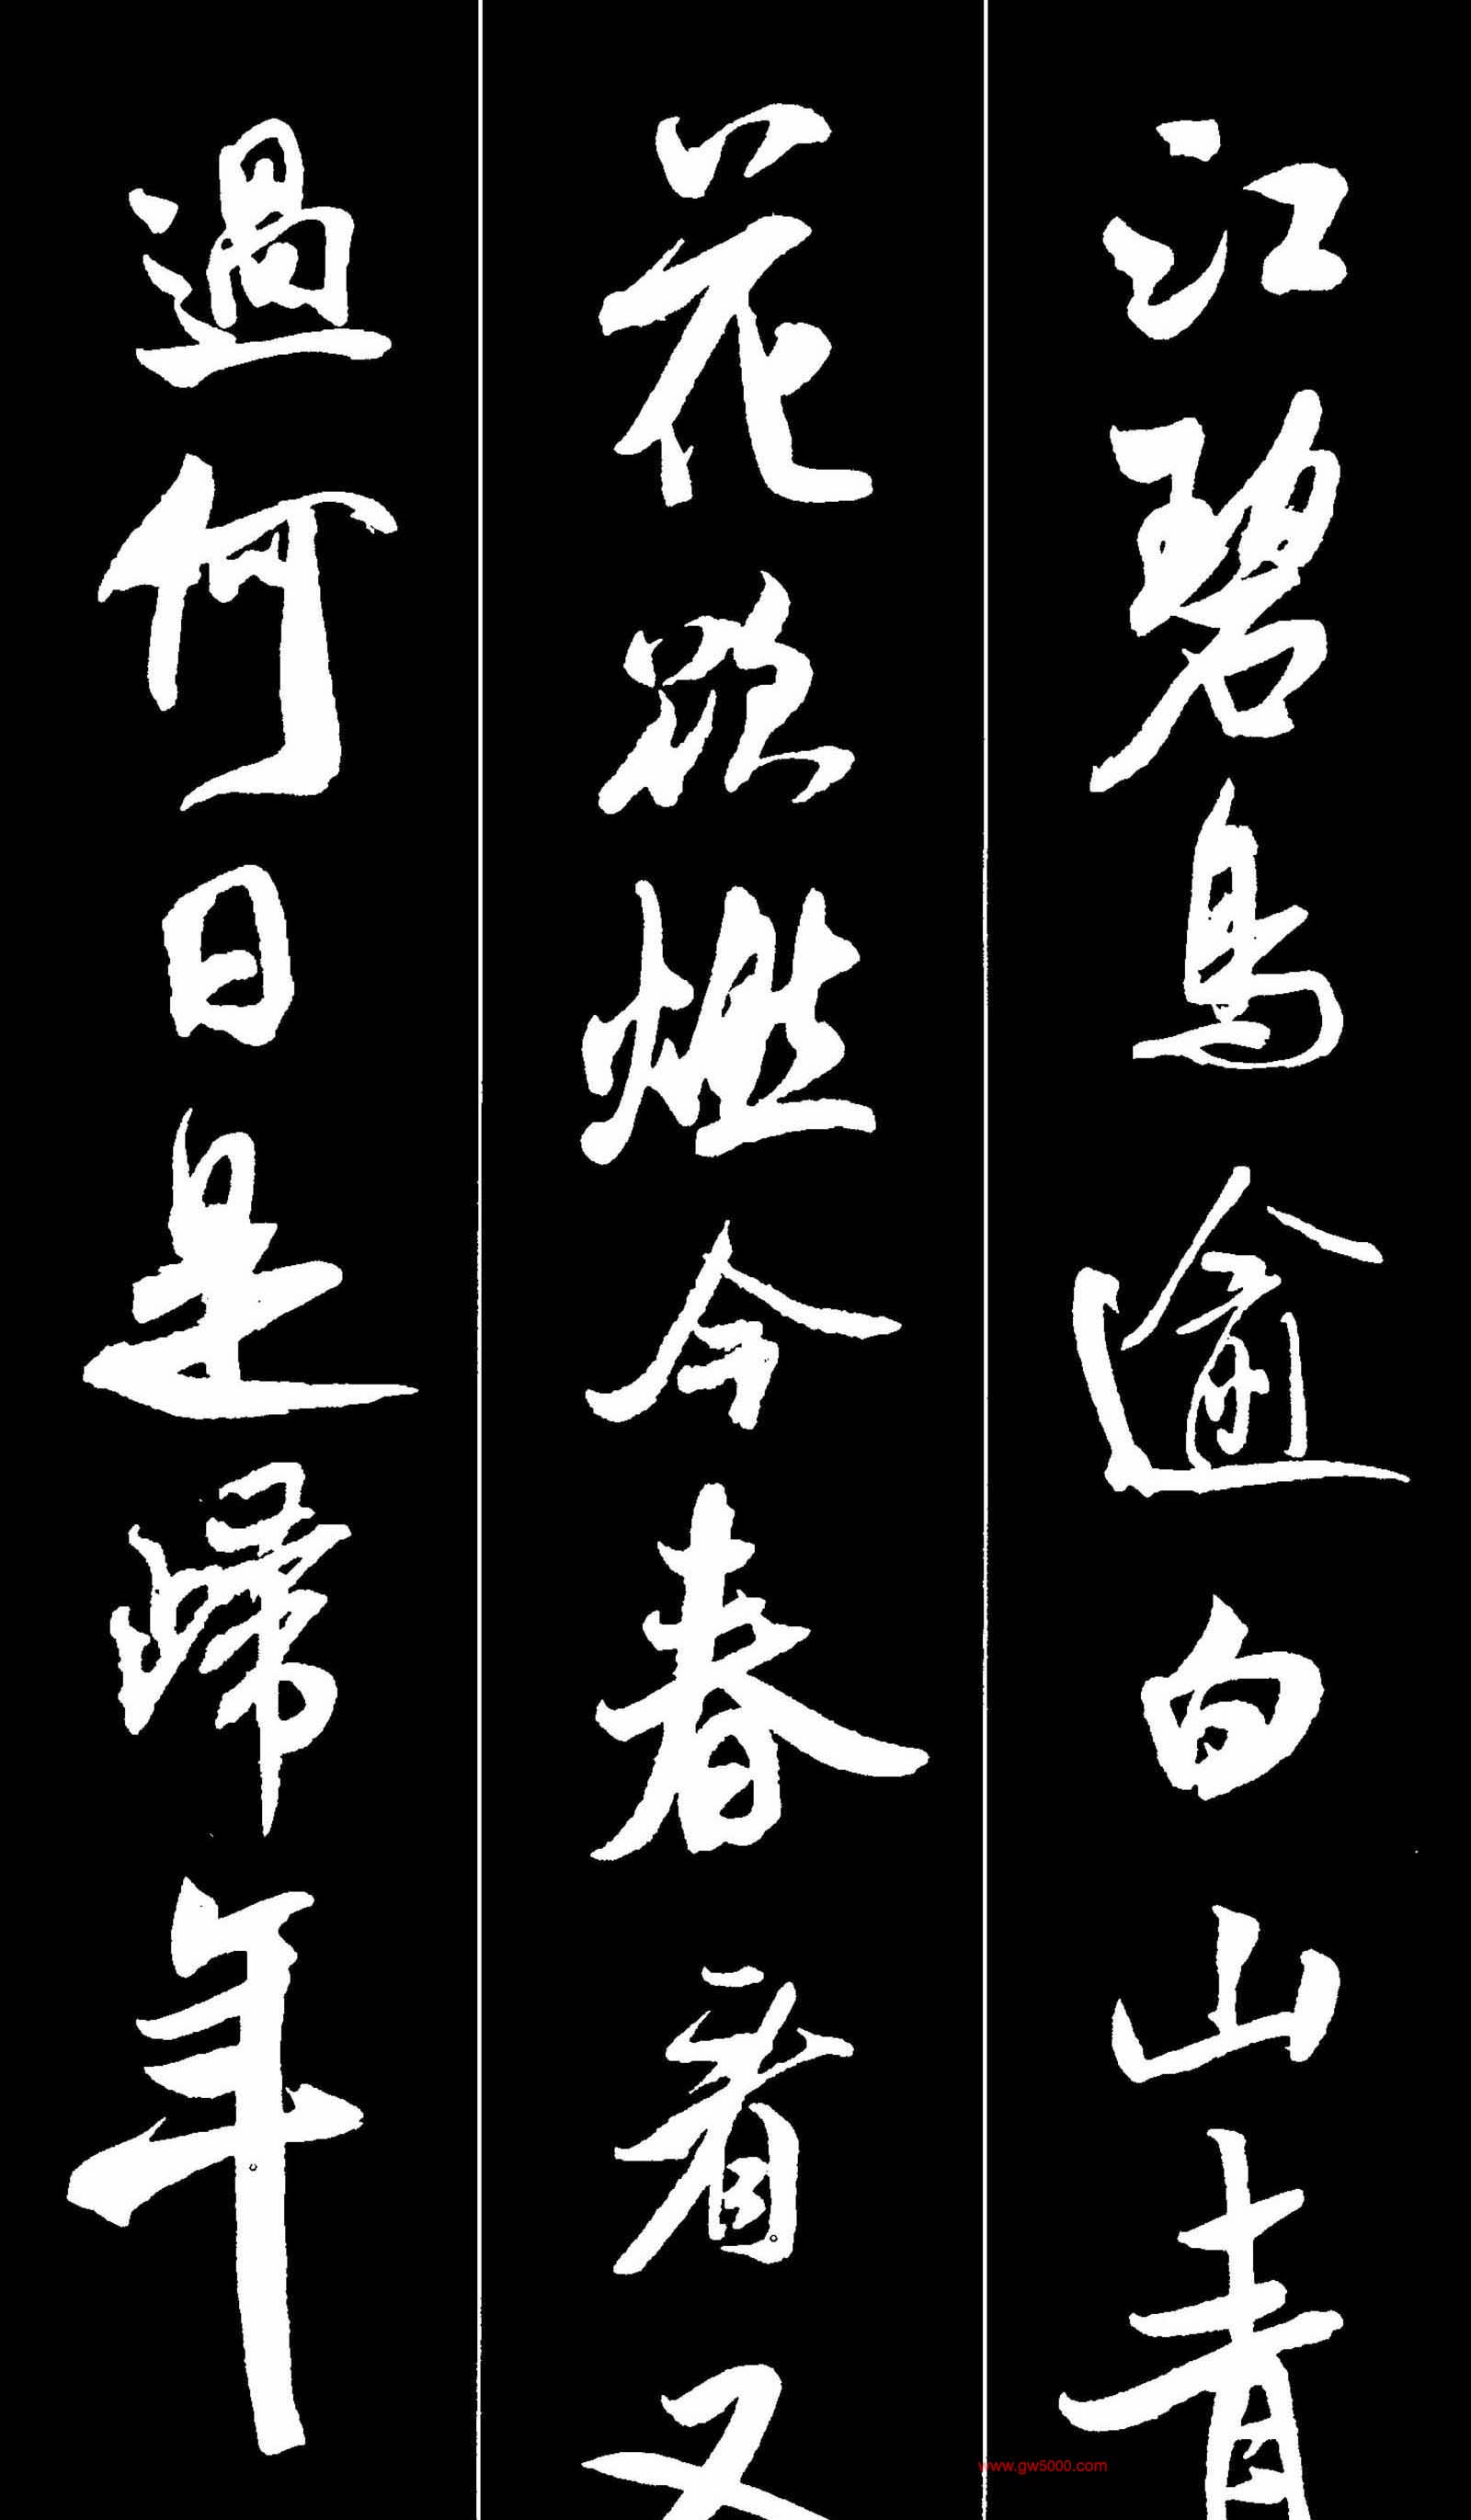 江碧鳥逾白山青
花欲燃今春看又
過何日是歸年
www.gw5000.com